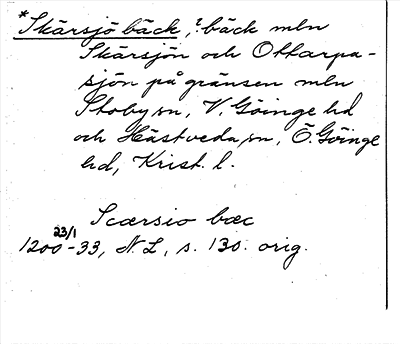 *Skärsjö bäck, ? bäck mln
Skärsjön och Ottarpa-
sjön på gränsen mln
Stoby sn, V. Göinge hd
och Hästveda sn, Ö. Göinge
hd, Krist. l.
Scærsio bæc
1200 23/1 -33, N L, s. 130. orig.